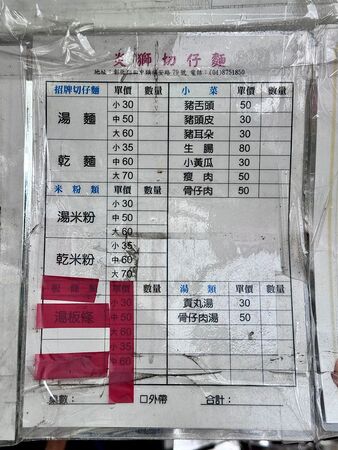 炎獅切仔麵
招牌切仔麵 單價 數量 小菜 單價 數量
湯麵 小30 豬舌頭 50
中50 豬頭皮 30
大60 豬耳朵 30
乾麵 小35 生腸 80
中60 小黃瓜 30
大70 瘦肉 50
米粉類 單價 數量 骨仔肉 50
湯米粉 小30
中50
大60
乾米粉 小35
中60
大70
單價 數量 湯類 單價 數量
湯板條 小30 貢丸湯 30
中50 骨仔肉湯 50
大60
小35
中60
桌數： 口外帶 合計：